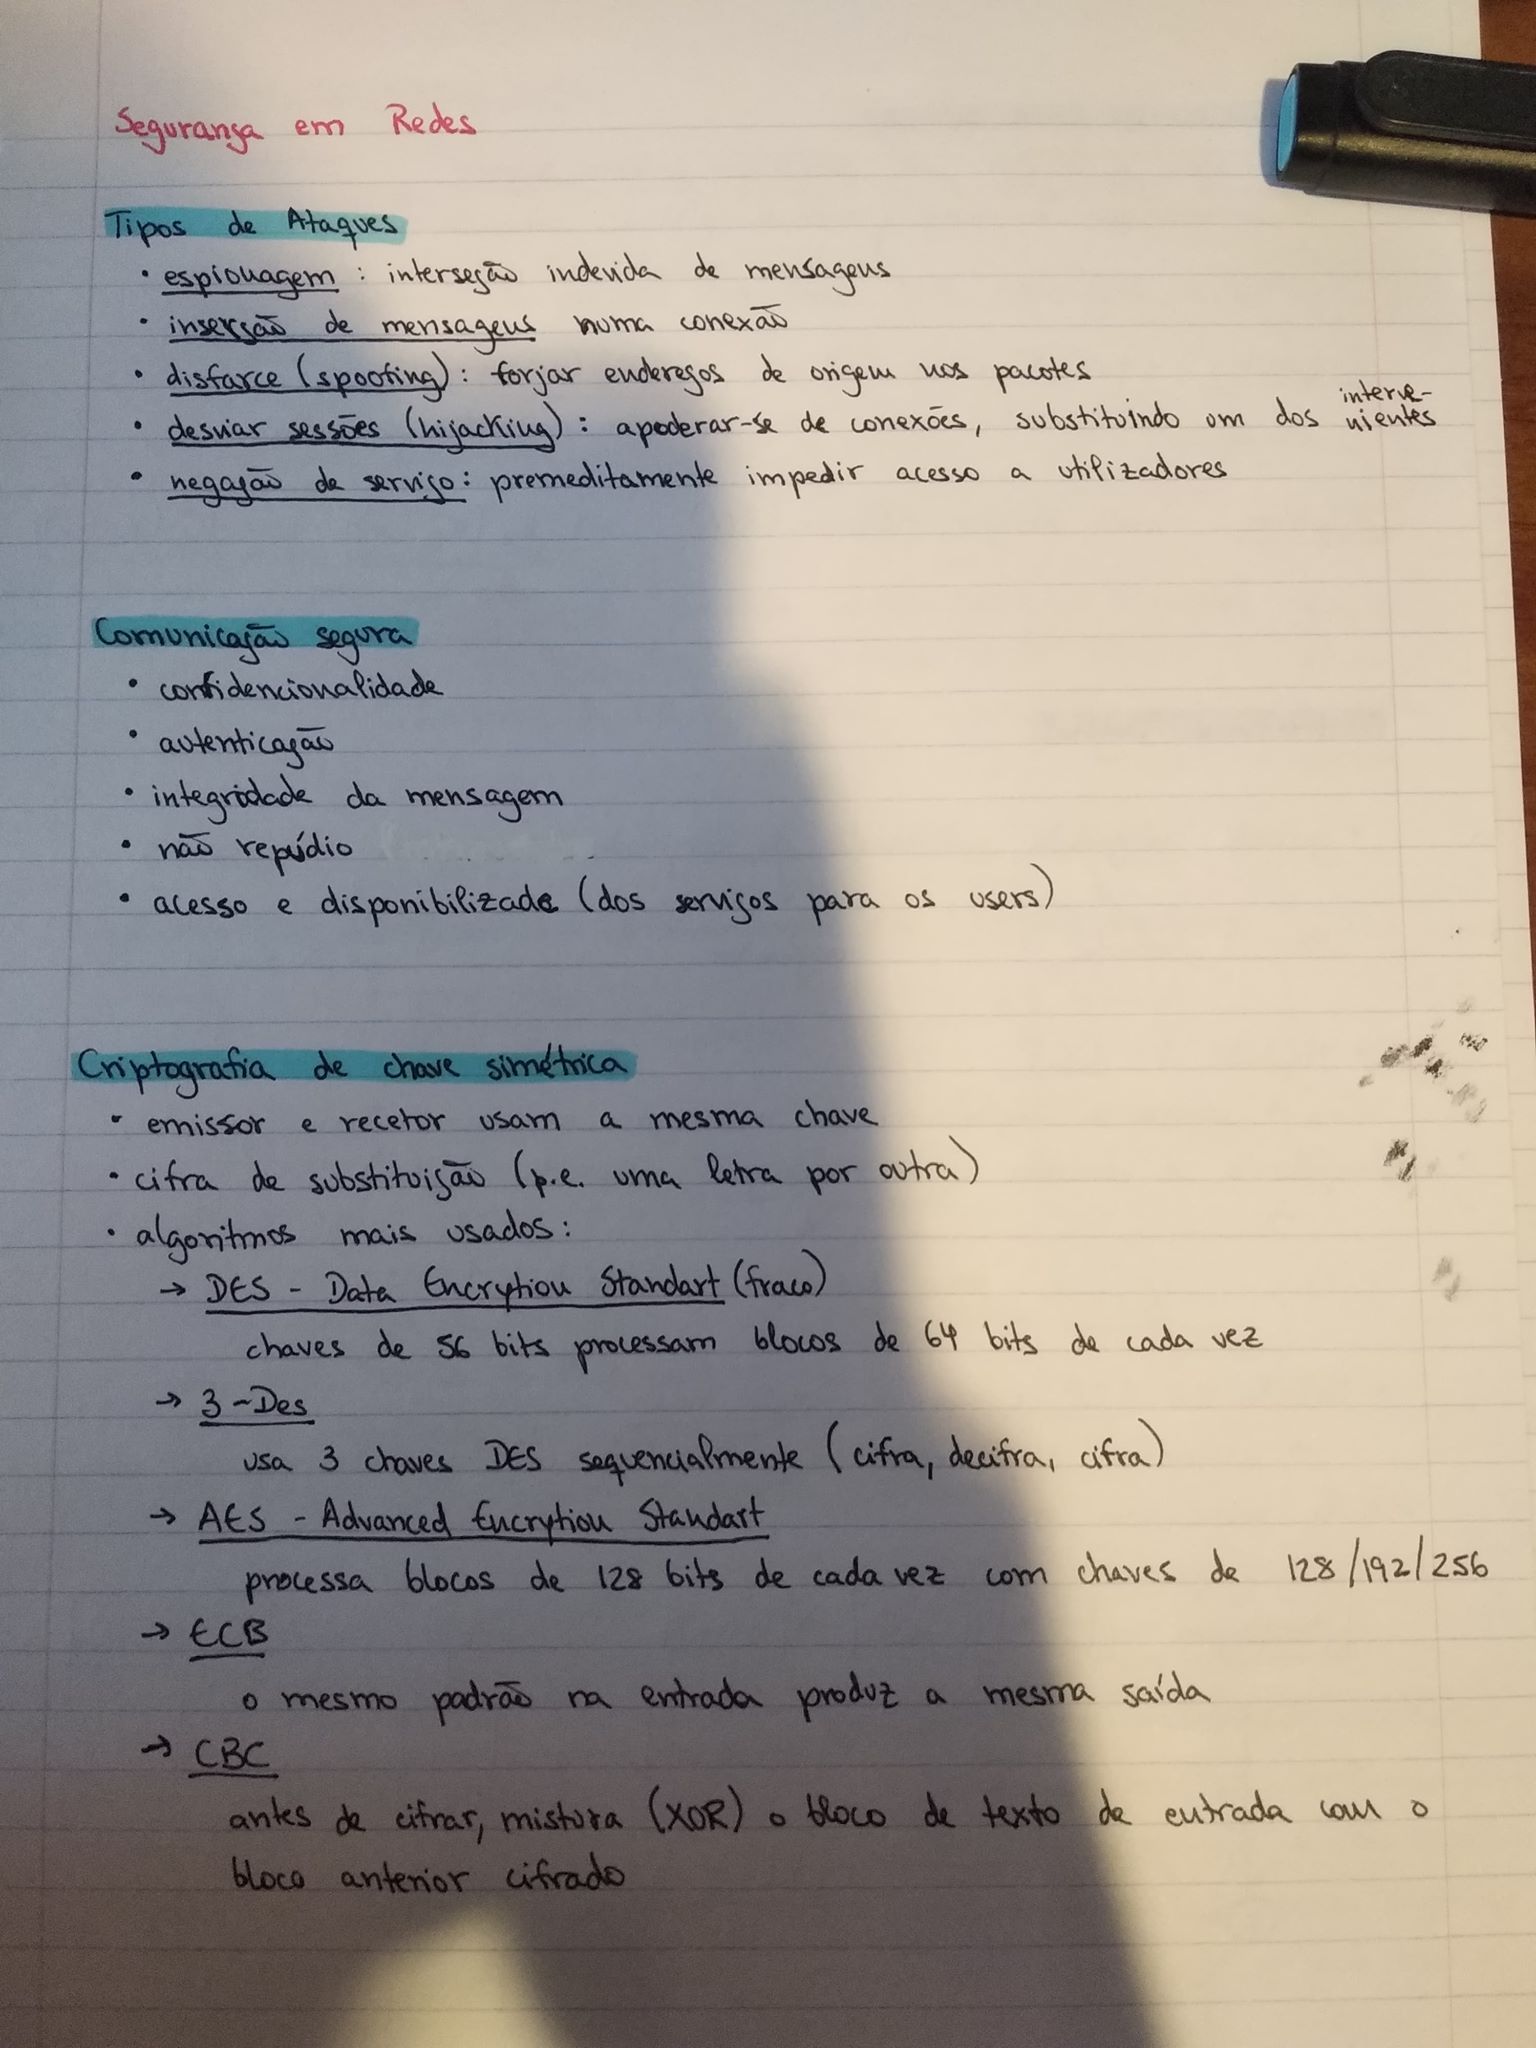 Segurança em Redes
Tipos de Ataques
• espionagem : interseção indevida de mensagens
• inserção de mensagens numa conexão
• disfarce (spoofing) : forjar endereços de origem nos pacotes
• desviar sessões (hijacking) : apoderar-se de conexões, substituindo um dos interve-
nientes
• negação de serviço : premeditamente impedir acesso a utilizadores
Comunicação segura
• confidencionalidade
• autenticação
• integridade da mensagem
• não repúdio
• acesso e disponibilizade (dos serviços para os users)
Criptografia de chave simétrica
• emissor e recetor usam a mesma chave
• cifra de substituição (p.e. uma letra por outra)
• algoritmos mais usados :
→ DES - Data Encrytion Standart (fraco)
chaves de 56 bits processam blocos de 64 bits de cada vez
→ 3-Des
usa 3 chaves DES sequencialmente (cifra, decifra, cifra)
→ AES - Advanced Encrytion Standart
processa blocos de 128 bits de cada vez com chaves de 128/192/256
→ ECB
o mesmo padrão na entrada produz a mesma saída
→ CBC
antes de cifrar, mistura (XOR) o bloco de texto de entrada com o
bloco anterior cifrado